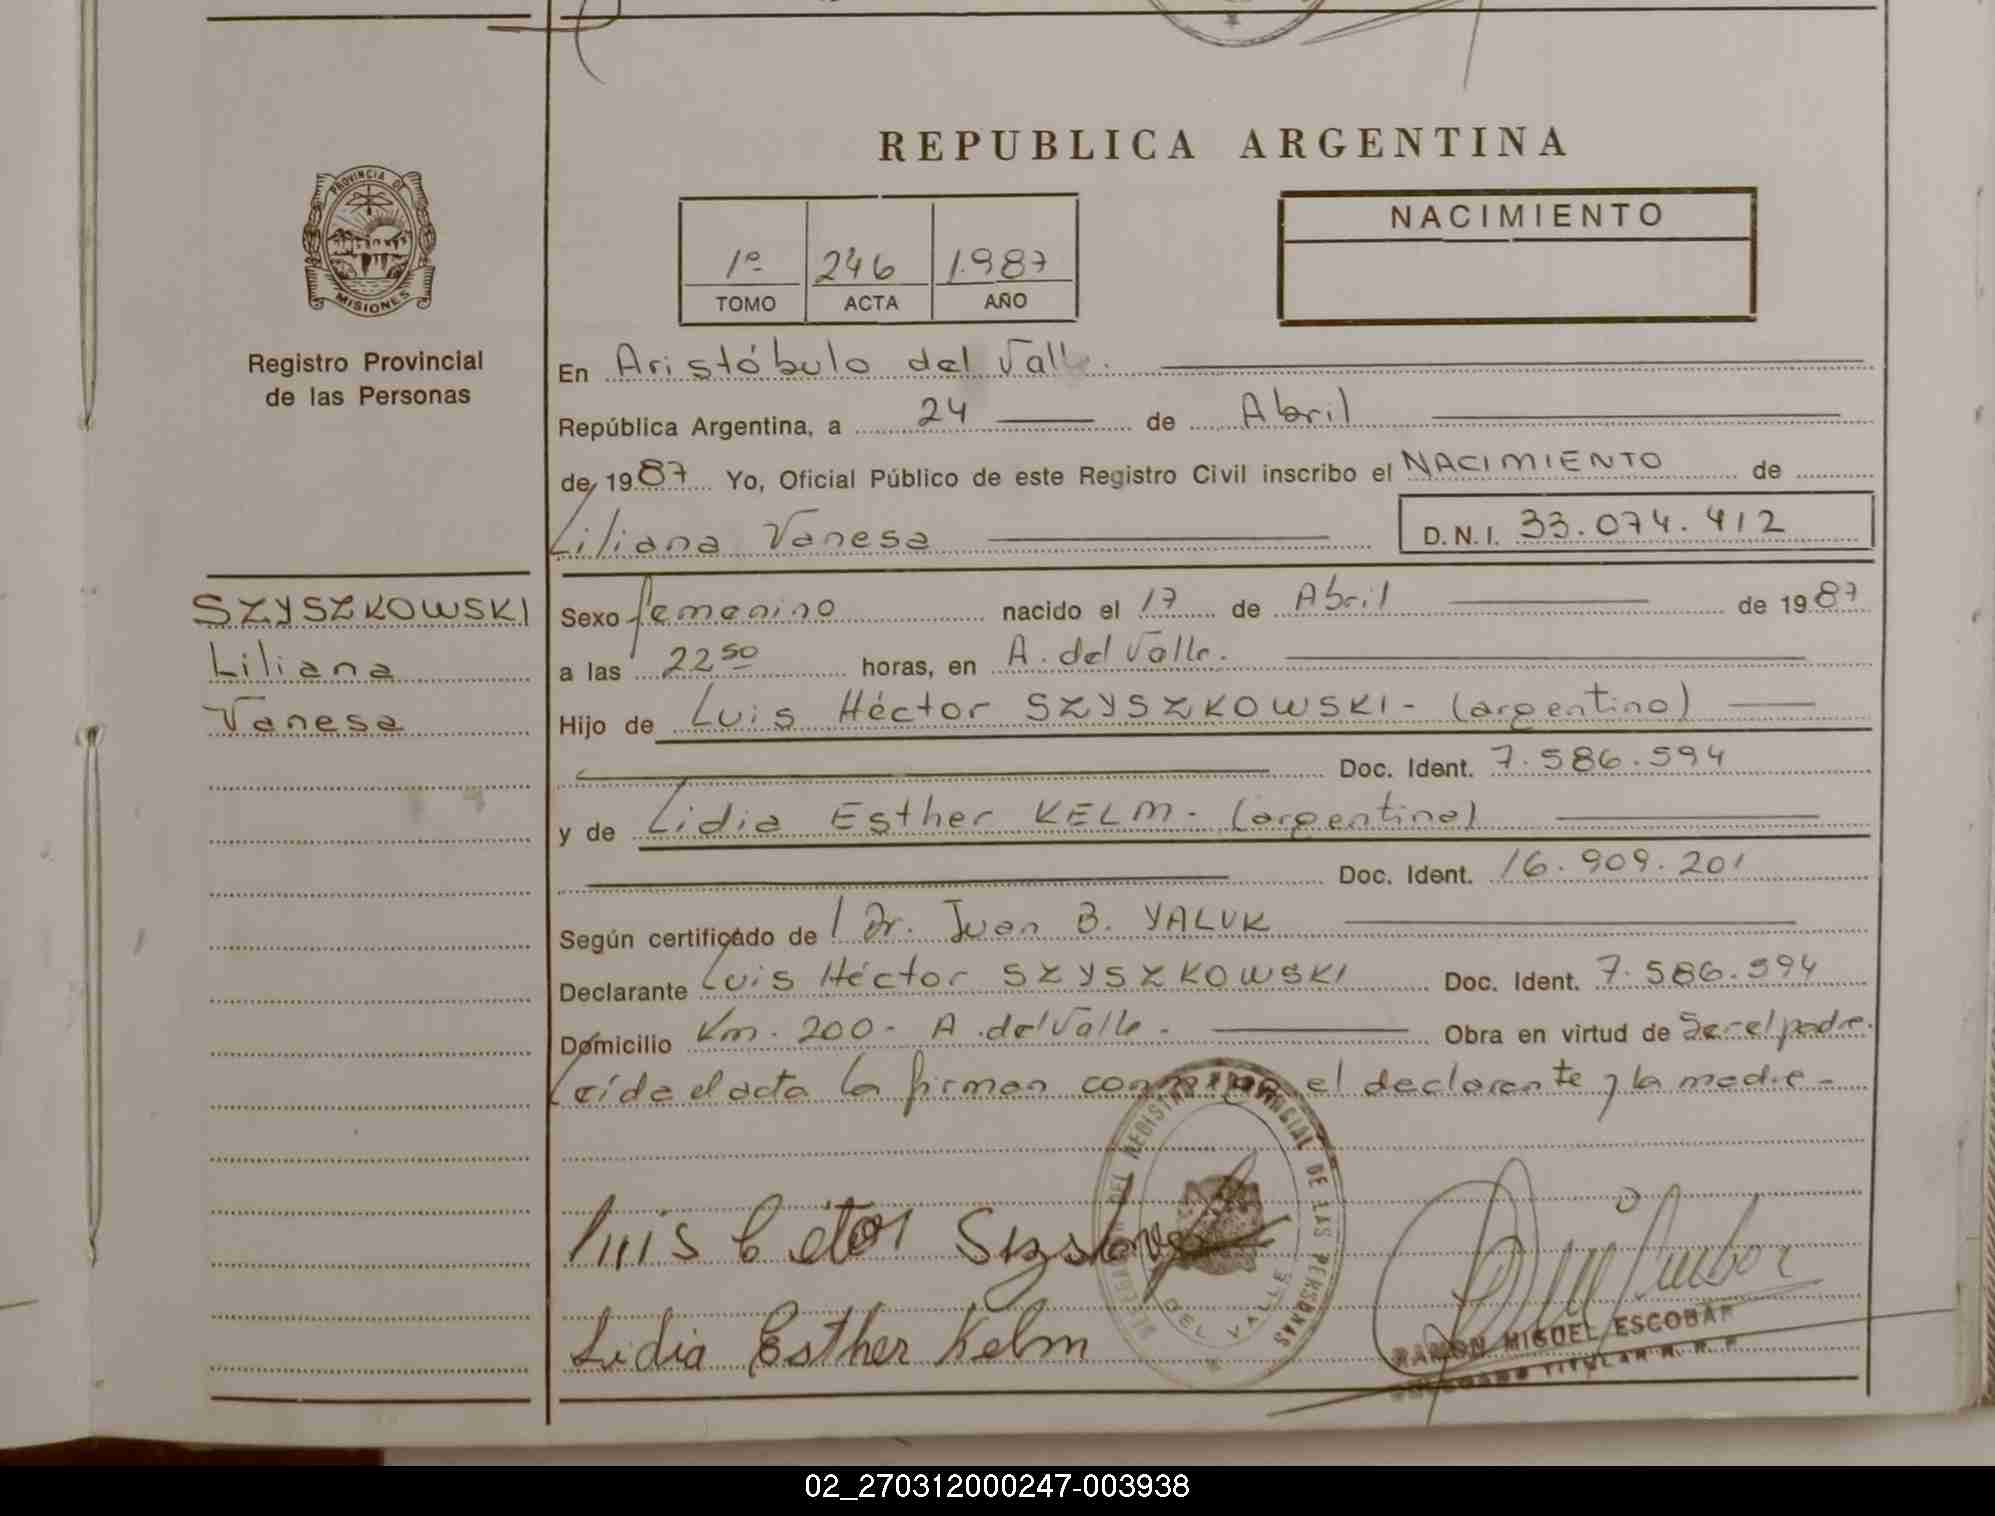 REPUBLICA ARGENTINA
PROVINCIA DE
MISIONES
Registro Provincial
de las Personas
1º 246 1.987
TOMO ACTA AÑO
NACIMIENTO
En Aristóbulo del Valle.
República Argentina, a 24 de Abril
de 1987 Yo, Oficial Público de este Registro Civil inscribo el NACIMIENTO de
Liliana Vanesa D.N.I. 33.074.412
SZYSZKOWSKI
Liliana
Vanesa
Sexo femenino nacido el 17 de Abril de 1987
a las 22 50 horas, en A. del Valle.
Hijo de Luis Héctor SZYSZKOWSKI - (argentino)
Doc. Ident. 7.586.594
y de Lidia Esther KELM - (argentina)
Doc. Ident. 16.909.201
Según certificado de Dr. Juan B. YALUK
Declarante Luis Héctor SZYSZKOWSKI Doc. Ident. 7.586.594
Domicilio Km. 200 - A. del Valle - Obra en virtud de Ser el padre.
Leída el acta la firman conmigo el declarante y la madre -
DEL REGISTRO PROVINCIAL DE LAS PERSONAS
DEL VALLE
Lidia Esther Kelm
RAMON MIGUEL ESCOBAR
TITULAR R. R. P.
02_270312000247-003938